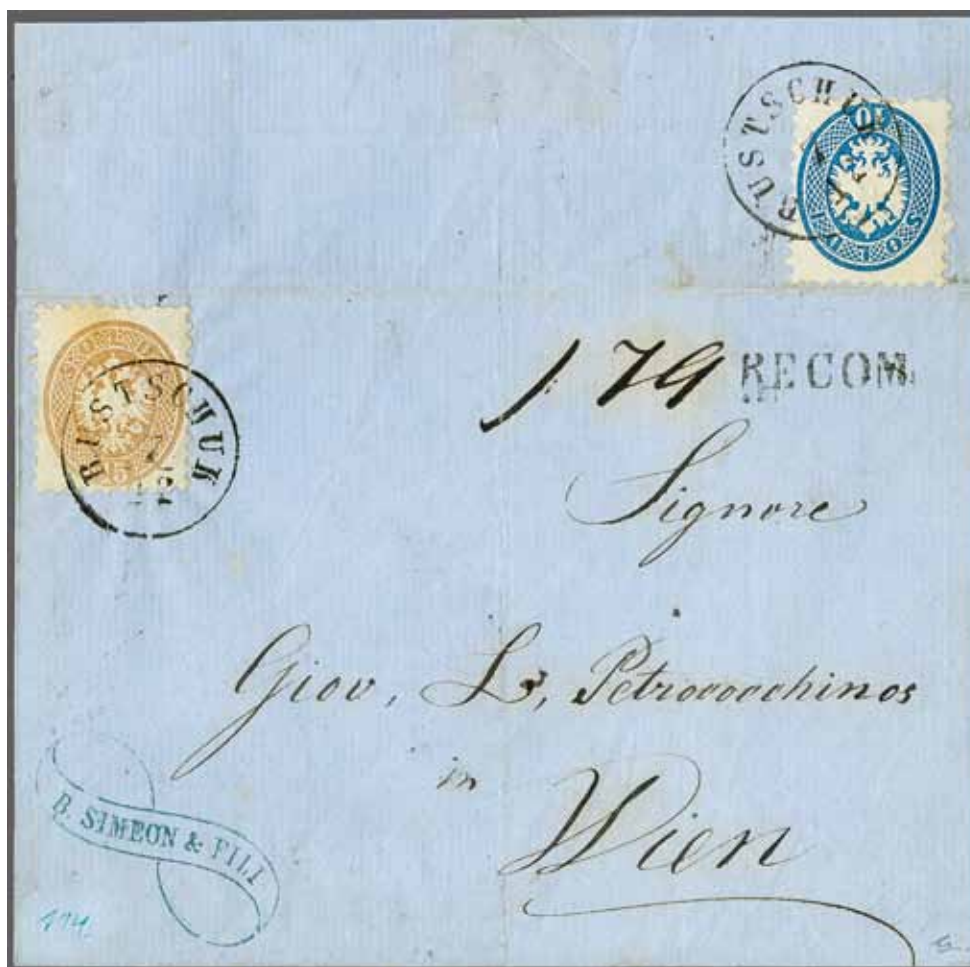 RUSTSCHUK
10 SOLDI
RUSTSCHUK
15 SOLDI
179 RECOM.
Signore
Giov, L, Petrococchinos
in
Wien
B. SIMEON & FILI
474.